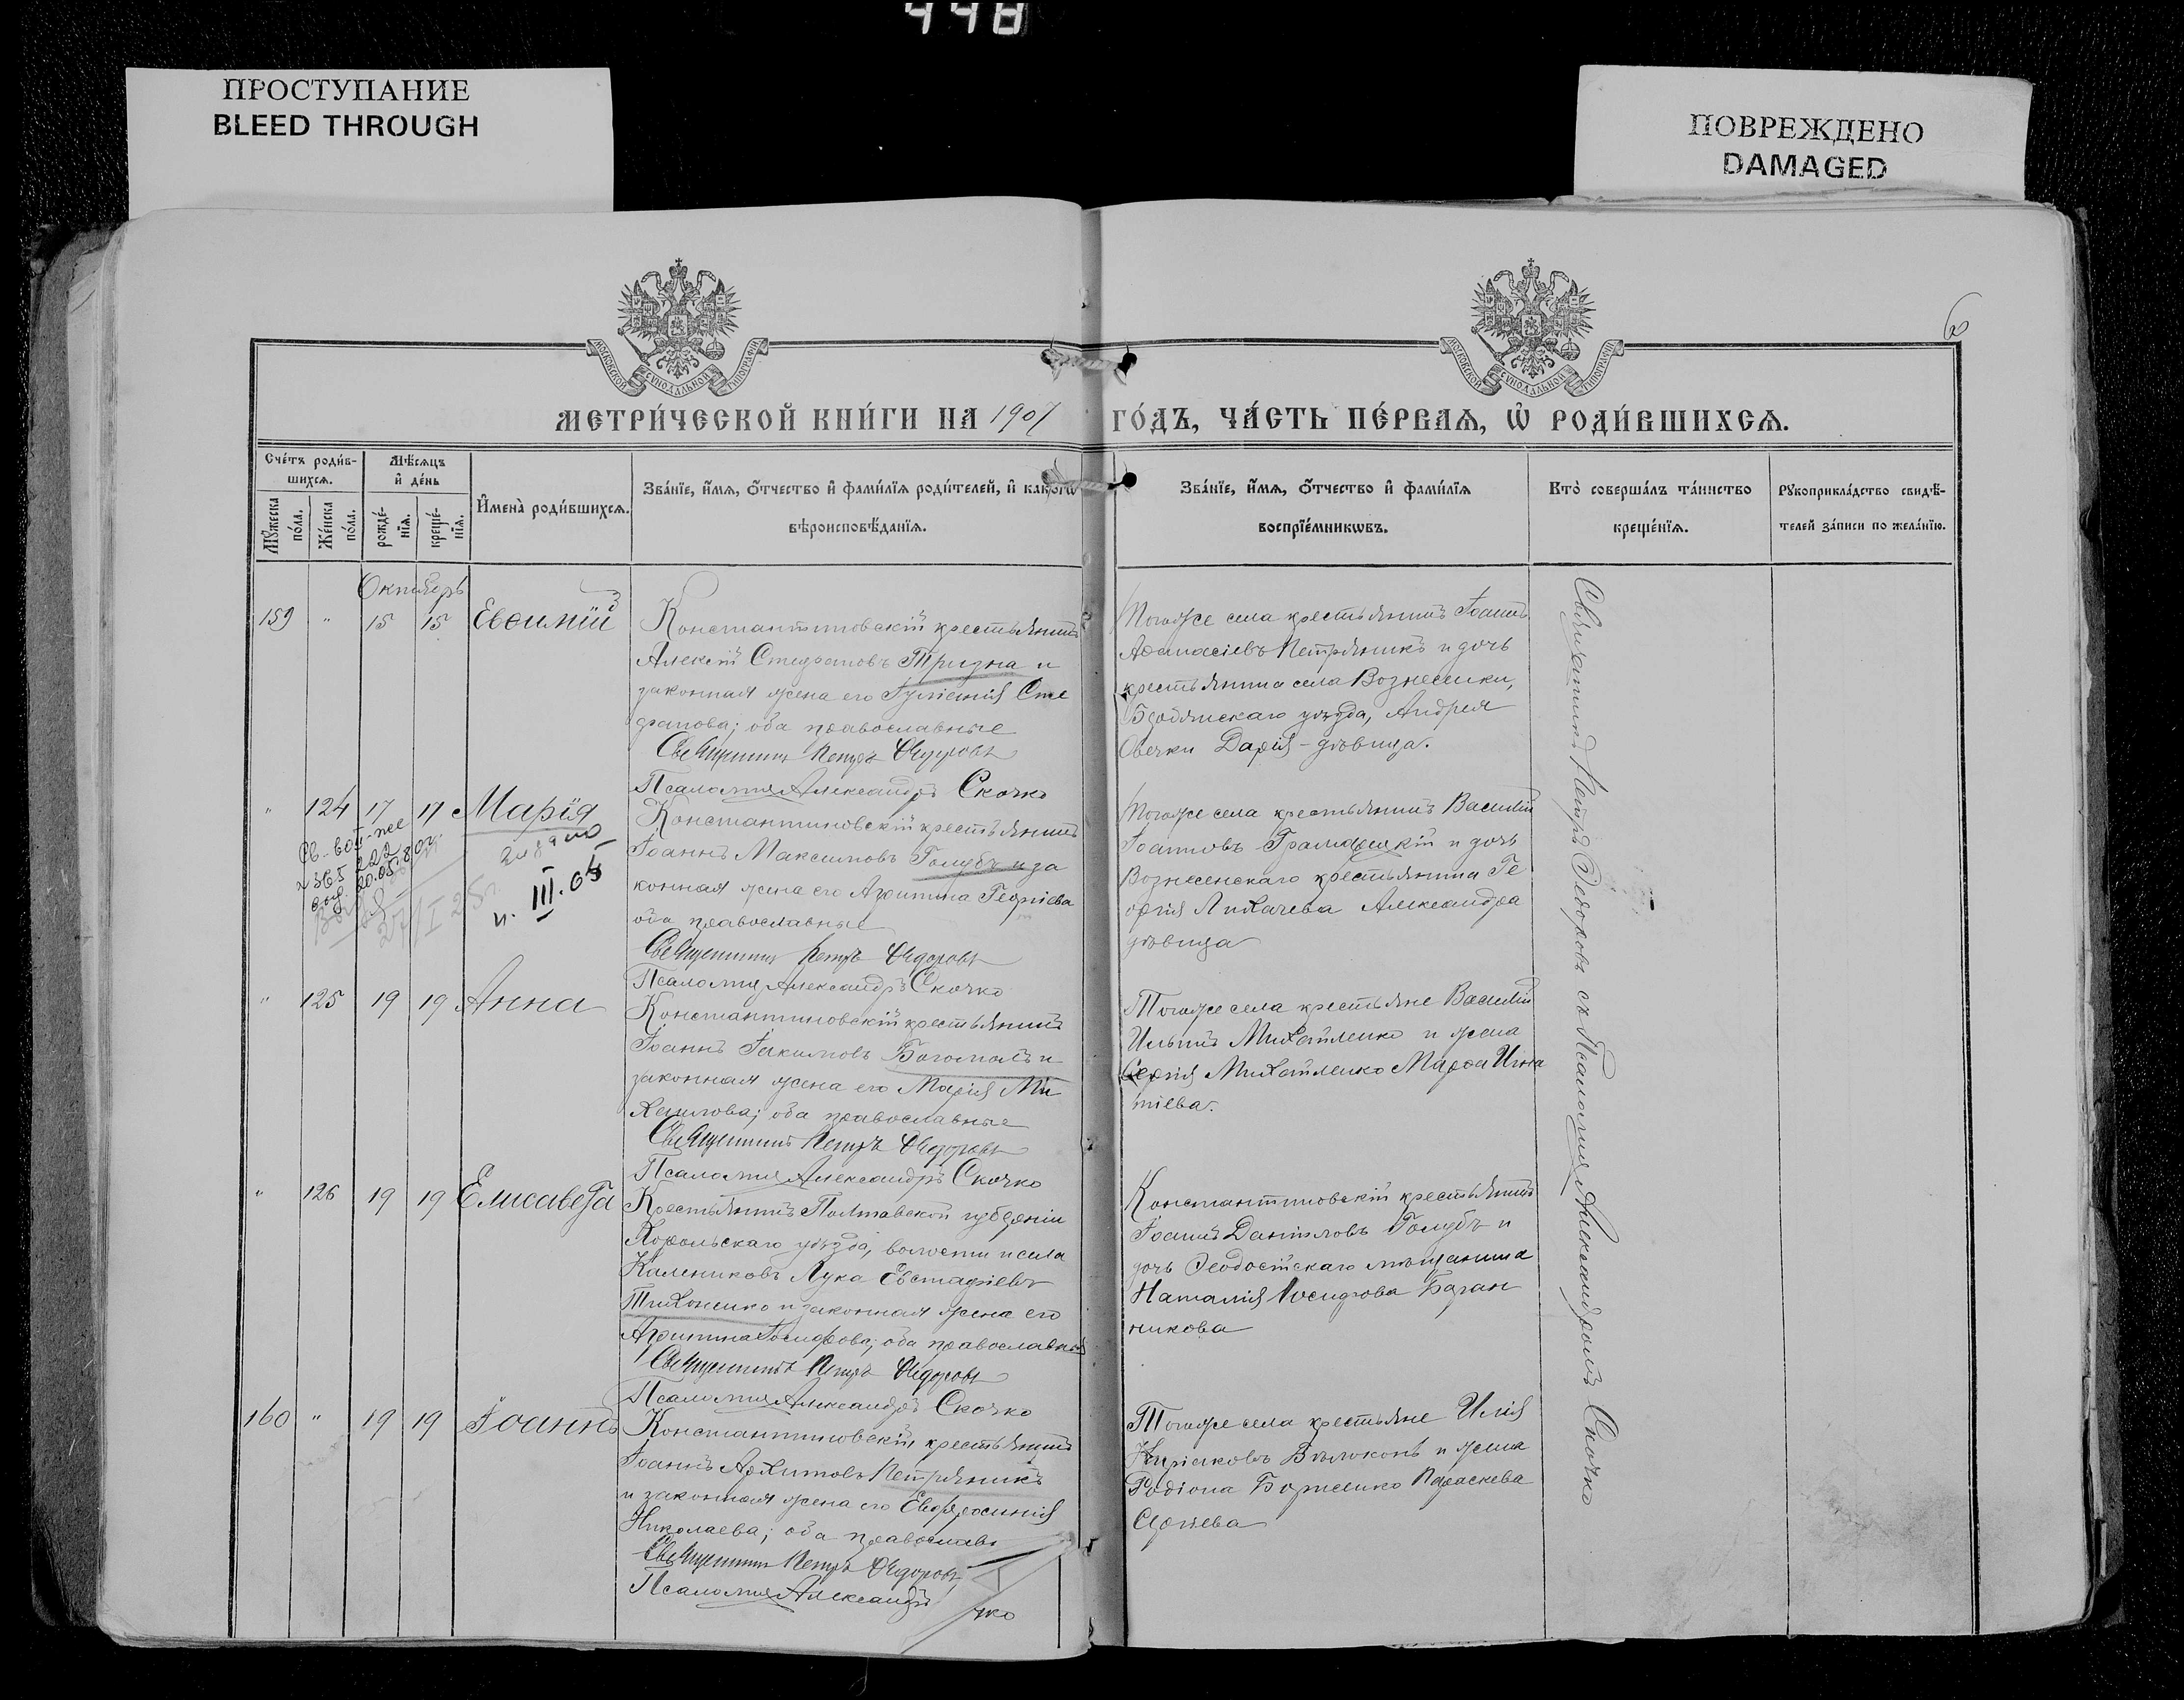 448
ПРОСТУПАНИЕ
BLEED THROUGH
ПОВРЕЖДЕНО
DAMAGED
МОСКОВСКОЙ СУНОДАЛЬНОЙ ТИПОГРАФІИ
МОСКОВСКОЙ СУНОДАЛЬНОЙ ТИПОГРАФІИ
МЕТРИ́ЧЕСКОЙ КНИ́ГИ НА 1907 ГО́ДЪ, ЧА́СТЬ ПЕ́РВАѦ, Ѡ҆ РОДИ́ВШИХСѦ.
Сче́тъ роди́в-
шихсѧ.
Мꙋ́жеска
по́ла.
Же́нска
по́ла.
Мѣ́сѧцъ
и҆ де́нь
рожде́-
нїѧ.
креще́-
нїѧ.
И҆мена̀ роди́вшихсѧ.
Зва́нїе, и҆́мѧ, ѻ҆́тчество и҆ фами́лїѧ роди́телей, и҆ како́гѡ
вѣроисповѣ́данїѧ.
Зва́нїе, и҆́мѧ, ѻ҆́тчество и҆ фами́лїѧ
воспрїе́мникѡвъ.
Кто̀ соверша́лъ та́инство
креще́нїѧ.
Рꙋкоприкла́дство свидѣ́-
телей за́писи по жела́нїю.
Октябрь
159 " 15 15 Евѳимій
Константиновскій крестьянинъ
Алексій Стефановъ Тризна и
законная жена его Іуліанія Сте
фанова; оба православные
Священникъ Петръ Ѳедоровъ
Псаломщ Александръ Скочко
Тогоже села крестьянинъ Іоаннъ
Аѳанасіевъ Петряникъ и дочь
крестьянина села Вознесенки,
Бердянскаго уѣзда, Андрея
Овечки Дарія - дѣвица.
" 124 17 17 Марія
Св-во II-же
20.05.
27/I 25 г.
III.05
Константиновскій крестьянинъ
Іоаннъ Максимовъ Голубъ и за
конная жена его Агрипина Георгіева
оба православные
Священникъ Петръ Ѳедоровъ
Псаломщ Александръ Скочко
Тогоже села крестьянинъ Василій
Іоанновъ и дочь
Вознесенскаго крестьянина Ге
оргія Лихачева Александра
дѣвица
" 125 19 19 Анна
Константиновскій крестьянинъ
Іоаннъ Іакимовъ Богомолъ и
законная жена его Марія Ми
хаилова; оба православные
Священникъ Петръ Ѳедоровъ
Псаломщ Александръ Скочко
Тогоже села крестьяне Василій
Ильинъ Михайленко и жена
Сергія Михайленко Марѳа Игна
тіева.
" 126 19 19 Елисавета
Крестьянинъ Полтавской губерніи
Хорольскаго уѣзда, волости и села
Калениковъ Лука Евстафіевъ
Тихоненко и законная жена его
Агрипина Іосифова; оба православные
Священникъ Петръ Ѳедоровъ
Псаломщ Александръ Скочко
Константиновскій крестьянинъ
Іоаннъ Даниловъ Голубъ и
дочь Ѳеодосійскаго мѣщанина
Наталія Іосифова Баран
никова
160 " 19 19 Іоаннъ
Константиновскій крестьянинъ
Іоаннъ Архиповъ Петряникъ
и законная жена его Евфросинія
Николаева; оба православн
Священникъ Петръ Ѳедоровъ
Псаломщ Александръ
чко
Тогоже села крестьяне Илія
Киріаковъ Бѣлоконь и жена
Родіона Борисенко Параскева
Сергіева
Священникъ Петръ Ѳедоровъ съ Псаломщ Александромъ Скочко